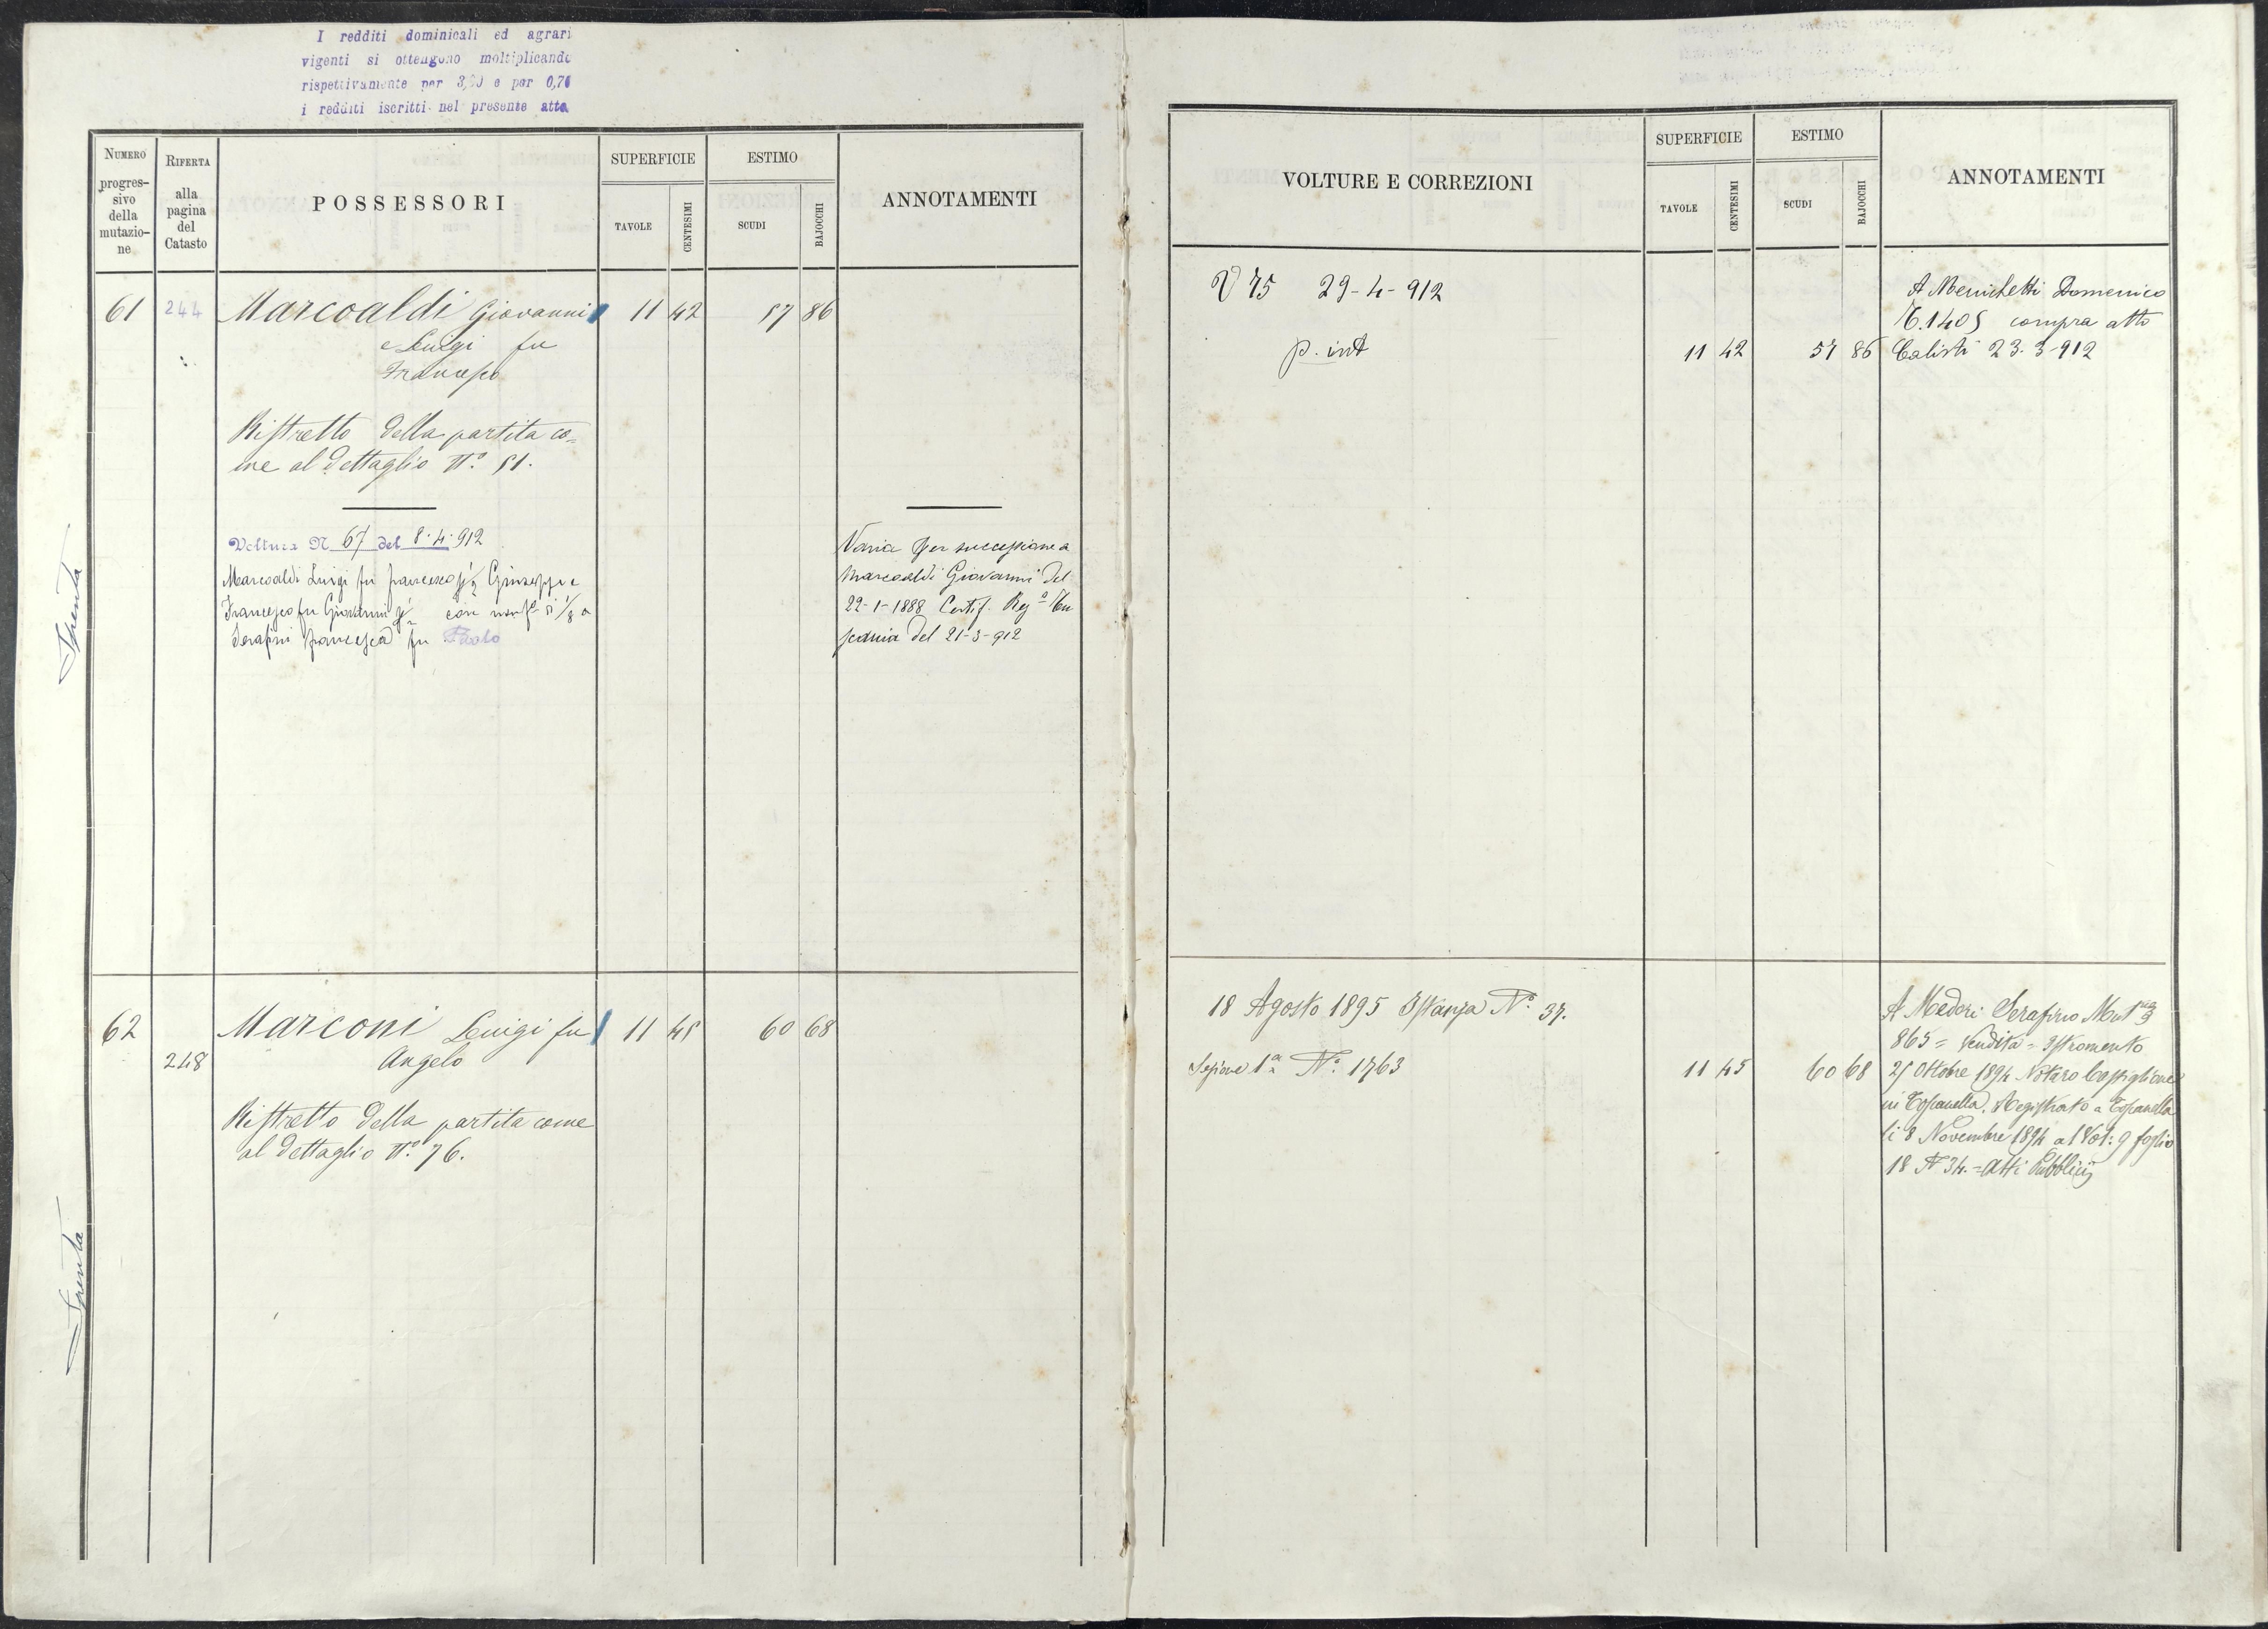 I redditi dominicali ed agrari
vigenti si ottengono moltiplicando
rispettivamente per 3,20 e per 0,70
i redditi iscritti nel presente atto.
NUMERO progres-
sivo
della
mutazio-
ne
RIFERTA
alla
pagina
del
Catasto
POSSESSORI
SUPERFICIE
TAVOLE
CENTESIMI
ESTIMO
SCUDI
BAJOCCHI
ANNOTAMENTI
61 244 Marcoaldi Giovanni 11 42 57 86
e Luigi fu
Francesco
Ristretto della partita co=
me al dettaglio N.º 51.
Voltura N 67 del 8.4.912
Marcoaldi Luigi fu Francesco p 1/2 Giuseppe e
Francesco fu Giovanni p 1/2 con usuf. di 1/8 a
Serafini Francesca fu Paolo
Varia per successione a
Marcoaldi Giovanni del
22-1-1888 Certif. Reg.º
del 21-3-912
Spenta
62 Marconi Luigi fu 11 45 60 68
248 Angelo
Ristretto della partita come
al dettaglio N.º 76.
Spenta
VOLTURE E CORREZIONI
SUPERFICIE
TAVOLE
CENTESIMI
ESTIMO
SCUDI
BAJOCCHI
ANNOTAMENTI
V 75 29-4-912
p. int 11 42 57 86
A Menichetti Domenico
N.1405 compra atto
Calisti 23-3-912
18 Agosto 1895 Istanza N.º 37.
Sezione 1ª N.º 1763 11 45 60 68
A Medori Serafino Mut.ne
865 = Vendita = Istromento
25 Ottobre 1894 Notaro Castiglione
in Toscanella. Registrato a Toscanella
li 8 Novembre 1894 al Vol: 9 foglio
18 N 34. = Atti Pubblici